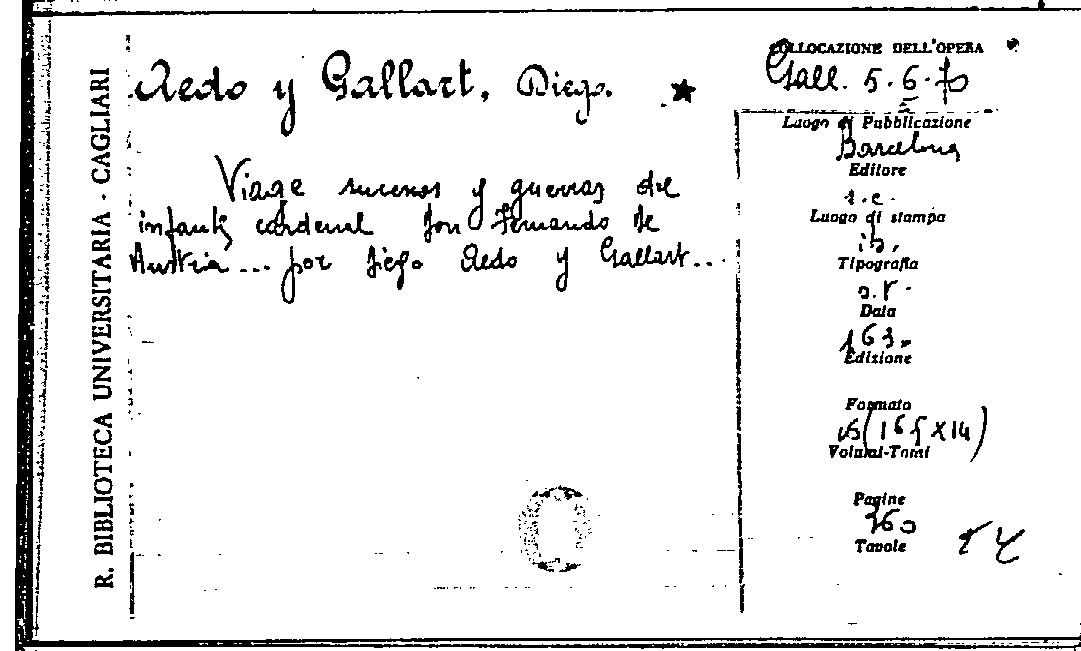 R. BIBLIOTECA UNIVERSITARIA - CAGLIARI
Aedo y Gallart, Diego.
Viage sucesos y guerras del
infante cardenal Don Fernando de
Austria... por Diego Aedo y Gallart...
COLLOCAZIONE DELL'OPERA
Gall. 5.6.70
Luogo di Pubblicazione
Barcelona
Editore
s.e.
Luogo di stampa
ib.
Tipografia
Data
163.
Edizione
Formato
(165X14)
Volumi-Tomi
Pagine
Tavole